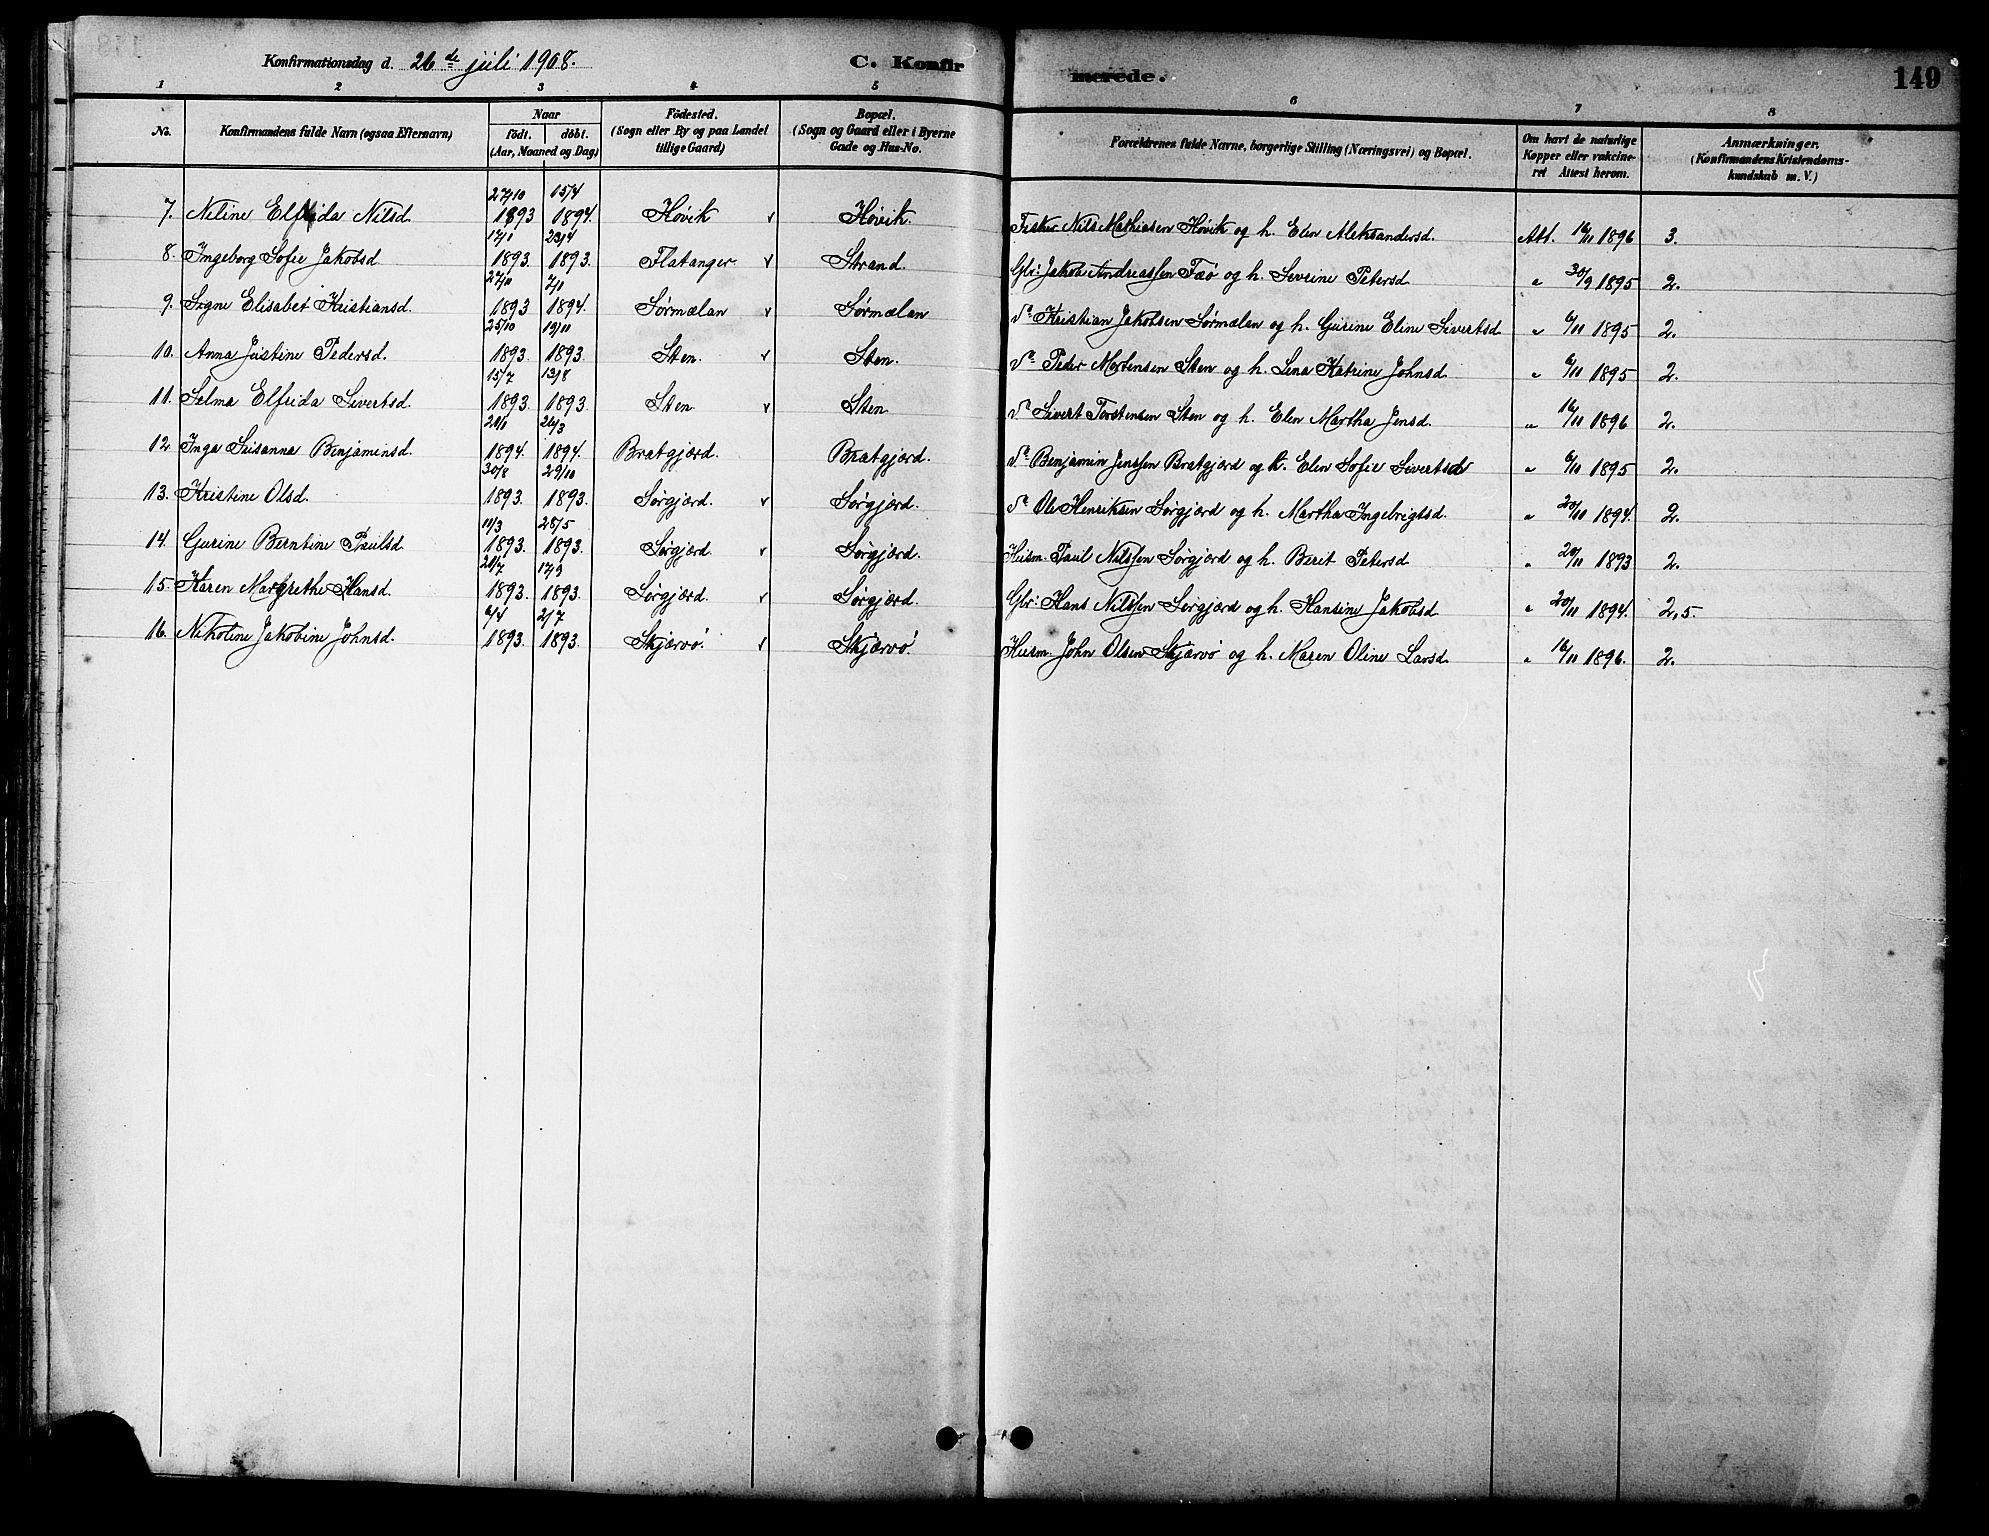 Konfirmationsdag d. 26de juli 1908. C. Konfirmerede. 149
1 2 3 4 5 6 7 8
No. Konfirmandens fulde Navn (ogsaa Efternavn) Naar födt. döbt. (Aar, Maaned og Dag) Födested. (Sogn eller By og paa Landet tillige Gaard) Bopæl. (Sogn og Gaard eller i Byerne Gade og Hus-No. Forældrenes fulde Navne, borgerlige Stilling (Næringsvei) og Bopæl. Om havt de naturlige Kopper eller vakcineret Attest herom. Anmærkninger. (Konfirmandens Kristendomskundskab m. V.)
7. Neline Elfrida Nilsd. 27/10 1893 15/4 1894. Høvik v Høvik. Fisker Nils Mathiesen Høvik og h. Elen Aleksandersd. Att. 16/11 1896 3.
8. Ingeborg Sofie Jakobsd. 1893. 23/4 1893. Flatanger v Strand. Gbr: Jakob Andreassen Faø og h. Severine Petersd. " 30/9 1895 2.
9. Signe Elisabet Kristiansd. 1893 1894. Sørmælan v Sørmælan Do Kristian Jakobsen Sørmælan og h. Gurine Eline Sivertsd. " 6/11 1895 2.
10. Anna Justine Pedersd. 25/10 1893. 1893. Sten. v Sten. Do Peder Mortensen Sten og h. Lina Katrine Johnsd. " 6/11 1895 2.
11. Selma Elfrida Sivertsd. 15/7 1893. 13/8 1893. Sten v Sten Do Sivert Torstensen Sten og h. Elen Martha Jensd. " 16/11 1896 2.
12. Inga Susanna Benjaminsd. 1894. 26/3 1894. Bratgjærd. Bratgjærd. Do Benjamin Jenssen Bratgjærd og h. Elen Sofie Sivertsd " 6/11 1895 2.
13. Kristine Olsd. 30/8 1893. 29/10 1893. Sørgjærd. v Sørgjærd. Do Ole Henriksen Sørgjærd og h. Martha Ingebrigtsd. " 20/11 1894. 2.
14. Gurine Berntine Paulsd. 11/3 1893. 28/5 1893. Sørgjærd. v Sørgjærd. Husm. Paul Nilssen Sørgjærd og h. Berit Petersd. " 20/11 1893 2.
15. Karen Margrethe Hansd. 1893. 17/9 1893. Sørgjærd. v Sørgjærd. Gbr: Hans Nilssen Sørgjærd og h. Hansine Jakobsd. " 20/11 1894. 2,5.
16. Nikoline Jakobine Johnsd. 1893. 2/7 1893. Skjærvø. v Skjærvø Husm. John Olsen Skjærvø og h. Maren Oline Larsd. " 16/11 1896. 2.